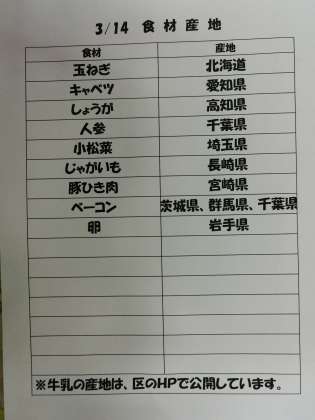 3/14 食材産地
食材 産地
玉ねぎ 北海道
キャベツ 愛知県
しょうが 高知県
人参 千葉県
小松菜 埼玉県
じゃがいも 長崎県
豚ひき肉 宮崎県
ベーコン 茨城県、群馬県、千葉県
卵 岩手県
※牛乳の産地は、区のHPで公開しています。